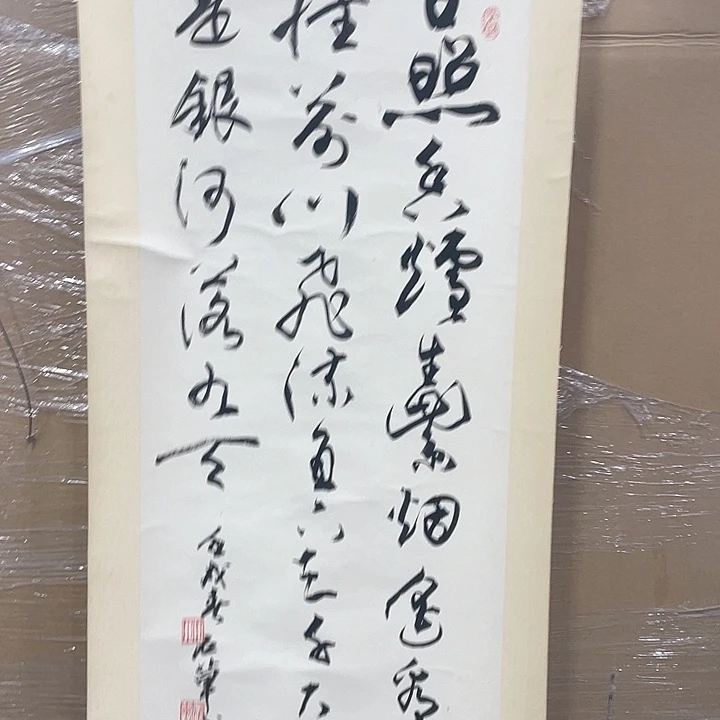 日照香爐生紫烟遥看
挂前川飛流直下三千尺
是銀河落九天
壬戌春